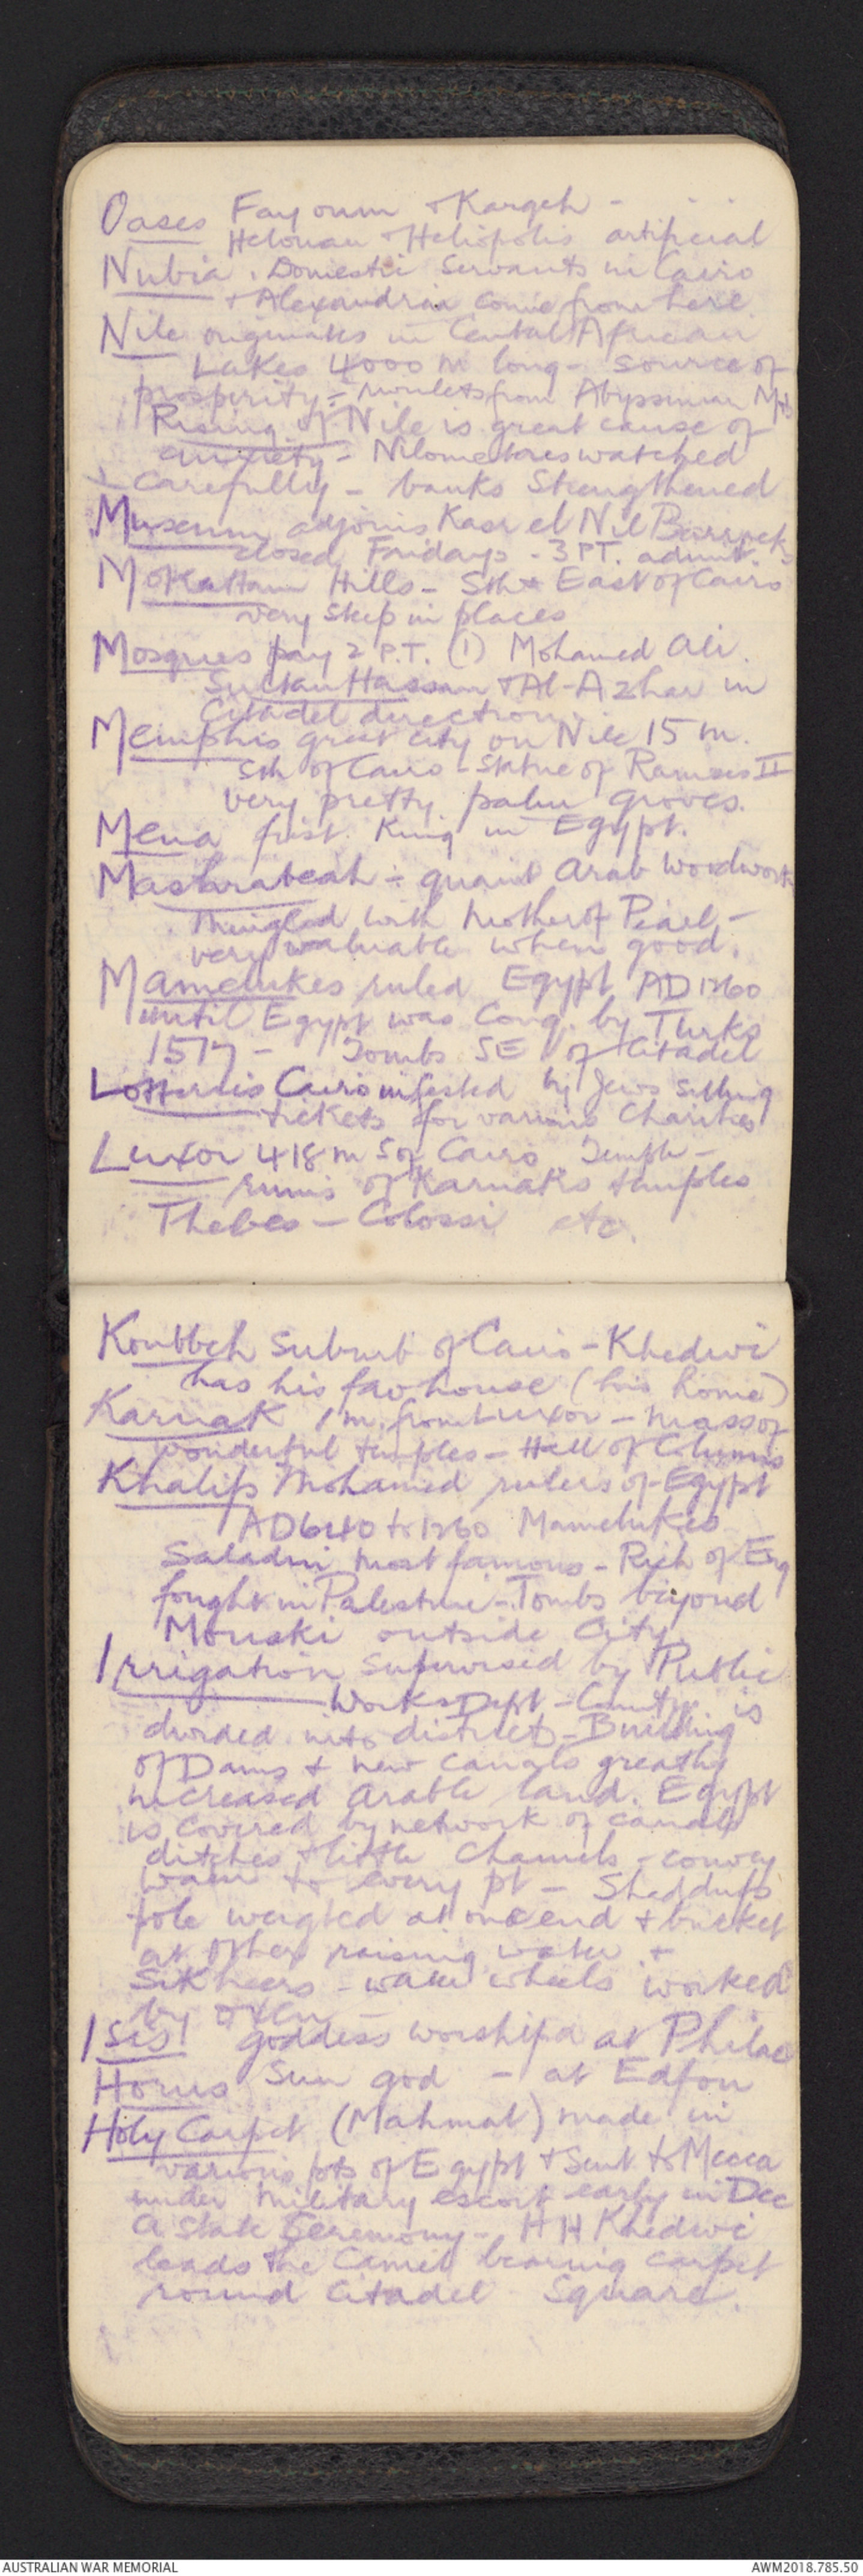 Oases Fayoum & Kargeh -
Helouan & Heliopolis artificial
Nubia. Domestic Servants in Cairo
& Alexandria come from here
Nile originates in Cental African
Lakes 4000 m long - source of
prosperity - from Abyssinian Mts
Rising of Nile is great cause of
anxiety - Nilometres watched
carefully - banks Strengthened
Museum adjoins Kasr el Nil Barracks
closed Fridays - 3 PT. admit.
Mokattam Hills - Sth & East of Cairo
very steep in places
Mosques pay 2 P.T. (1) Mohamed Ali.
Sultan Hassan & Al-Azhar in
Citadel direction
Memphis great city on Nile 15 m.
Sth of Cairo - Statue of Ramses II
very pretty palm groves.
Mena first King in Egypt.
Mashrabeah - quaint Arab Woodwork
mingled with Mother of Pearl -
very valuable when good.
Mamelukes ruled Egypt AD 1260
until Egypt was Conq. by Turks
1517 - Tombs SE of Citadel
Lotteries Cairo infested by Jews selling
tickets for various Charities
Luxor 418 m S of Cairo Temple -
ruins of Karnaks temples
Thebes - Colossi etc.
Koubbeh Suburb of Cairo - Khedive
has his fav house (his home)
Karnak 1 m. from Luxor - mass of
wonderful temples - Hall of Columns
Khalifs Mohamed rulers of Egypt
AD 640 to 1260 Mamelukes
Saladin most famous - Rich of Eng
fought in Palestine - Tombs beyond
Mouski outside City
Irrigation Supervised by Public
Works Dept - Country is
divided into districts - Building
of Dams & new canals greatly
increased arable land. Egypt
is covered by network of canals
ditches & little Channels - convey
water to every pt - Shaddufs
pole weighted at one end & bucket
at other raising water &
Sikheers - water wheels worked
by oxen -
Isis goddess worshipd at Philae
Horus Sun god - at Edfou
Holy Carpet (Mahmal) made in
various pts of Egypt & Sent to Mecca
under military escort early in Dec
a State Ceremony - HH Khedive
leads the Camel bearing carpet
round Citadel Square.
AUSTRALIAN WAR MEMORIAL
AWM2018.785.50